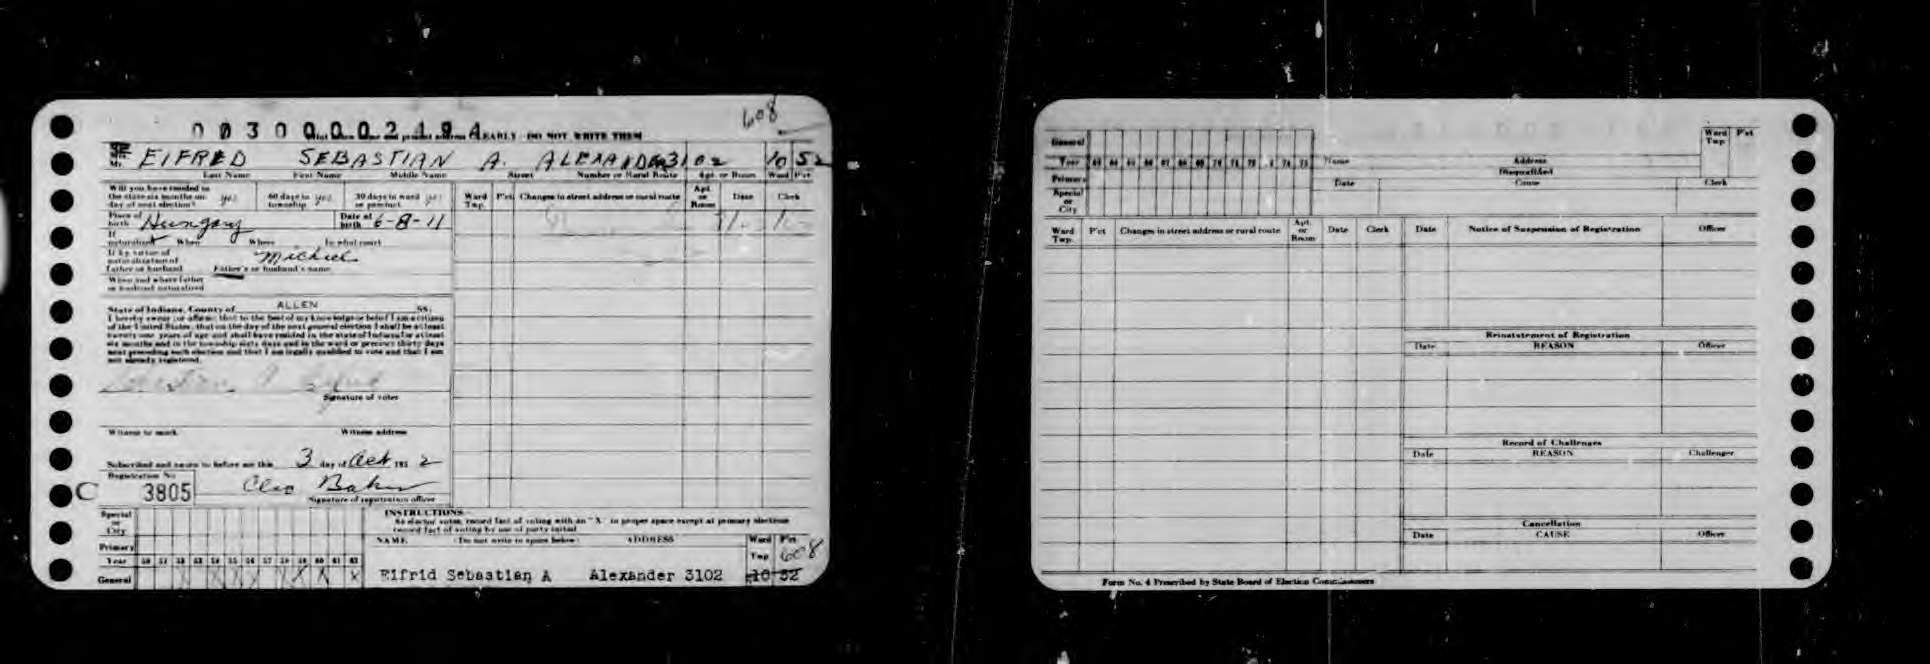 608
0030000219
EARLY - DO NOT WRITE THEM
EIFRED SEBASTIAN A. ALEXANDER 3102 10 52
Last Name First Name Middle Name Street Number or Rural Route Apt. or Room Ward Pct.
Will you have resided in the state six months on day of next election? yes 60 days in township yes 30 days in ward or precinct yes
Ward Twp. P'ct Changes in street address or rural route Apt. or Room Date Clerk
Place of birth Hungary Date of birth 6-8-11
If naturalized When Where In what court
If by virtue of naturalization of father or husband Michiel
Father's or husband's name
When and where father or husband naturalized
State of Indiana, County of ALLEN SS:
I hereby swear (or affirm) that to the best of my knowledge or belief I am a citizen
of the United States, that on the day of the next general election I shall be at least
twenty-one years of age and shall have resided in the state of Indiana for at least
six months and in the township sixty days and in the ward or precinct thirty days
next preceding such election and that I am legally qualified to vote and that I am
not already registered.
Signature of voter
Witness to mark Witness address
Subscribed and sworn to before me this 3 day of Oct 195 2
Registration No.
C 3805 Cleo Baker
Signature of registration officer
Special or City
INSTRUCTIONS
So elector votes, record fact of voting with an "X" in proper space except at primary elections
record fact of voting by use of party initial
Primary
NAME (Do not write in space below) ADDRESS Ward Twp. P'ct 608
Year 50 51 52 53 54 55 56 57 58 59 60 61 62
General X X X X X X X X X
Eifrid Sebastian A Alexander 3102 10 52
General
Year 63 64 65 66 67 68 69 70 71 72 74 75
Primary
Special or City
Name Address Ward Twp. P'ct
Disqualified
Date Cause Clerk
Ward Twp. P'ct Changes in street address or rural route Apt. or Room Date Clerk
Date Notice of Suspension of Registration Officer
Reinstatement of Registration
Date REASON Officer
Record of Challenges
Date REASON Challenger
Cancellation
Date CAUSE Officer
Form No. 4 Prescribed by State Board of Election Commissioners